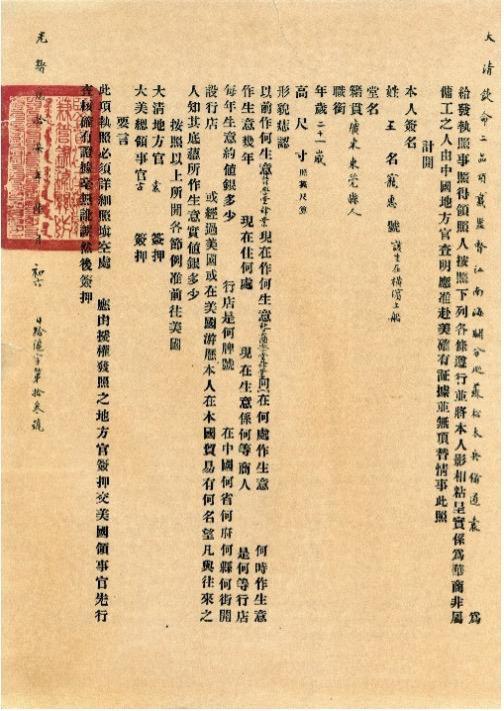 大清欽命二品頂戴監督江南海關分巡蘇松太兵備道袁 為
給發執照事照得領照人按照下列各條遵行並將本人影相粘呈實係為華商非屬
傭工之人由中國地方官查明應准赴美確有證據並無頂替情事此照
計開
本人簽名
姓 王 名 寵惠 號 該生在橫濱上船
堂名
籍貫 廣東東莞縣人
職銜
年歲 二十一歲
高 尺 寸 照英尺算
形貌痣認
以前作何生意 現在作何生意 在何處作生意 何時作生意
作生意幾年 現在住何處 現在生意係何等商人 是何等行店
每年生意約值銀多少 行店是何牌號 在中國何省何府何縣何街開
設行店 或經過美國或在美國游歷本人在本國貿易有何名望凡與往來之
人知其底蘊所作生意實值銀多少
按照以上所開各節例准前往美國
大清地方官 袁 簽押
大美總領事官古 簽押
要言
此項執照必須詳細照填空處 應由授權發照之地方官簽押交美國領事官先行
查核確有證據毫無訛誤然後簽押
光緒 年 月 初六 日 給滬字第拾叁號